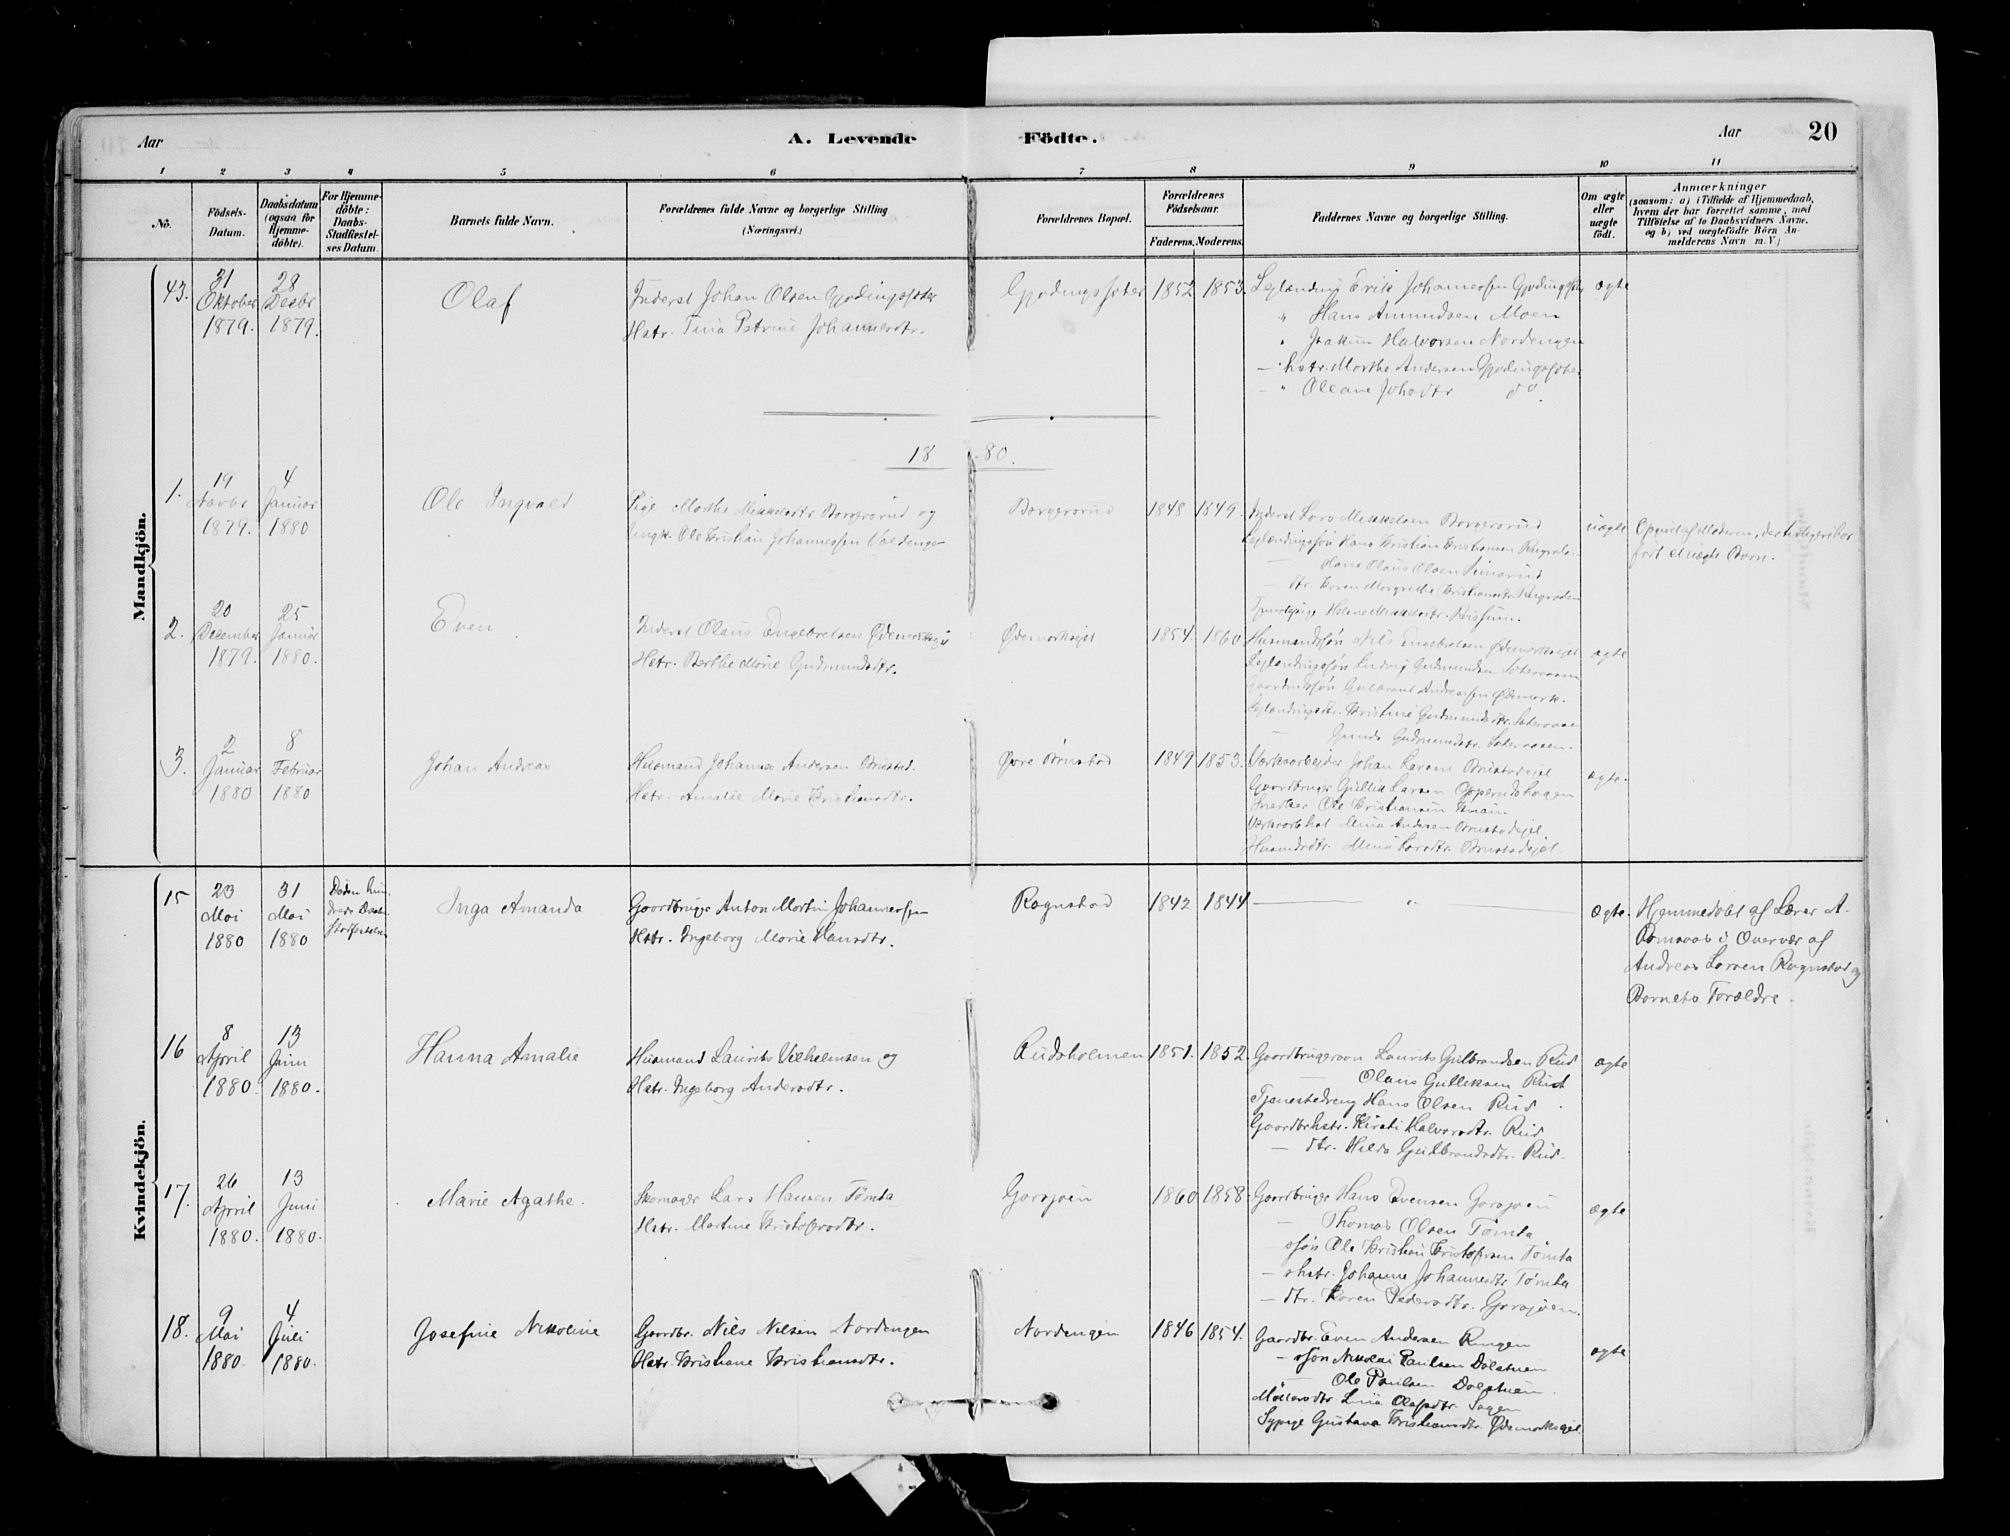 Aar
A. Levende Födte.
Aar
20
1 2 3 4 5 6 7 8 9 10 11
No.
Födsels-
Datum.
Daabsdatum
(ogsaa for
Hjemme-
döbte).
For Hjemme-
döbte:
Daabs-
Stadfæstel-
ses Datum.
Barnets fulde Navn.
Forældrenes fulde Navne og borgerlige Stilling
(Næringsvei.)
Forældrenes Bopæl.
Forældrenes
Födselsaar.
Faderens. Moderens.
Faddernes Navne og borgerlige Stilling.
Om ægte
eller
uægte
födt.
Anmærkninger
(saasom: a) i Tilfælde af Hjemmedaab,
hvem der har forrettet samme, med
Tilföielse af to Daabsvidners Navne,
og b) ved uægtefödte Börn An-
melderens Navn m. V.)
Mandkjön.
43.
31
Oktober
1879.
28
Decbr
1879.
Olaf
Inderst Johan Olsen Gjødingssæter
Hstr. Tina Petrine Johannesdtr.
Gjødingssæter
1852 1853.
Leilænding Erik Johannessen
" Hans Amundsen Moen
" Joakim Halvorsen Nordengen
— hstr. Marthe Andersen
— " Oleane Johsdtr do.
ægte
18 80.
1.
19
Novbr
1879.
4
Januar
1880
Ole Ingvald
Pige Marthe Mikkelsdtr Borgersrud og
Ungk. Ole Kristian Johannessen
Borgersrud
1848 1849.
Inderst Lars Mikkelsen Borgersrud
Leilændingssøn Hans Kristian Kristiansen
— Hans Olaus Olsen
— dtr. Karen Margrethe Kristiansdtr.
Tjenestepige Helene Mikkelsdtr.
uægte
Opgivet af Moderen, der tidligere har
født et uægte Barn.
2.
20
December
1879.
25
Januar
1880.
Even
Inderst Olaus Engebretsen Ødemarkseje
Hstr. Berthe Marie Gudmundsdtr.
Ødemarksejet
1854. 1860.
Husmandssøn Nils Engebretsen Ødemarksejet
Leilændingssøn Ludvig Gudmundsen
Gaardmdssøn Gulbrand Andreassen Ødemark.
Leilændingsdtr. Kristine Gudmundsdtr.
— Gudmundsdtr.
ægte
3.
2
Januar
1880
8
Februar
1880
Johan Andreas
Husmand Johannes Andersen Brustad.
Hstr. Amalie Marie Kristiansdtr.
Øvre Brustad
1849 1853.
Værksarbejder Johan Larsen Brustadejet
Gaardbruger Gullik Larsen
Snedker Ole Kristiansen
Mina Andersen Brustadejet.
Husmdsdtr. Mina Larsdtr. Brustadejet
ægte.
Kvindekjön.
15
23
Mai
1880
31
Mai
1880
Døden hin-
drede Daabs
Stadfæstelsen
Inga Amanda
Gaardbruger Anton Martin Johannessen
Hstr. Ingeborg Marie Hansdtr.
Rognstad
1842 1844
— " —
ægte.
Hjemmedøbt af Lærer A.
Romsaas i Overvær af
Andreas Larsen Rognstad og
Barnets Forældre.
16
8
April
1880.
13
Juni
1880.
Hanna Amalie
Husmand Laurits Vilhelmsen og
Hstr. Ingeborg Andersdtr.
Rudsholmen
1851. 1852.
Gaardbrugersøn Laurits Gulbrandsen Rud
— Olaus Gulliksen Rud
Tjenestedreng Hans Olsen Rud
Gaardbrhstr. Kirsti Halvorsdtr. Rud
— dtr. Hilda Gulbrandsdtr. Rud.
ægte
17.
26
April
1880.
13
Juni
1880.
Marie Agathe.
Skomager Lars Hansen Tømta
Hstr. Martine Kristofersdtr.
Garsjøen
1860 1858.
Gaardbruger Hans Evensen Garsjøen
— Thomas Olsen Tømta
— søn Ole Kristian Kristofersen Tømta
— hstr. Johanne Johannesdtr Tømta
— dtr. Karen Pedersdtr. Garsjøen.
ægte
18.
9
Mai
1880.
4
Juli
1880.
Josefine Nikoline
Gaardbr. Nils Nilsen Nordengen
Hstr. Kristiane Kristiansdtr.
Nordengen
1846 1854.
Gaardbr. Even Andersen Ringen
— søn Nikolai Paulsen Dolstuen
— Ole Paulsen Dolstuen.
Møllersdtr Lina Olafsdtr. Sagen
Sypige Gustava Kristiansdtr. Ødemarksejet.
ægte